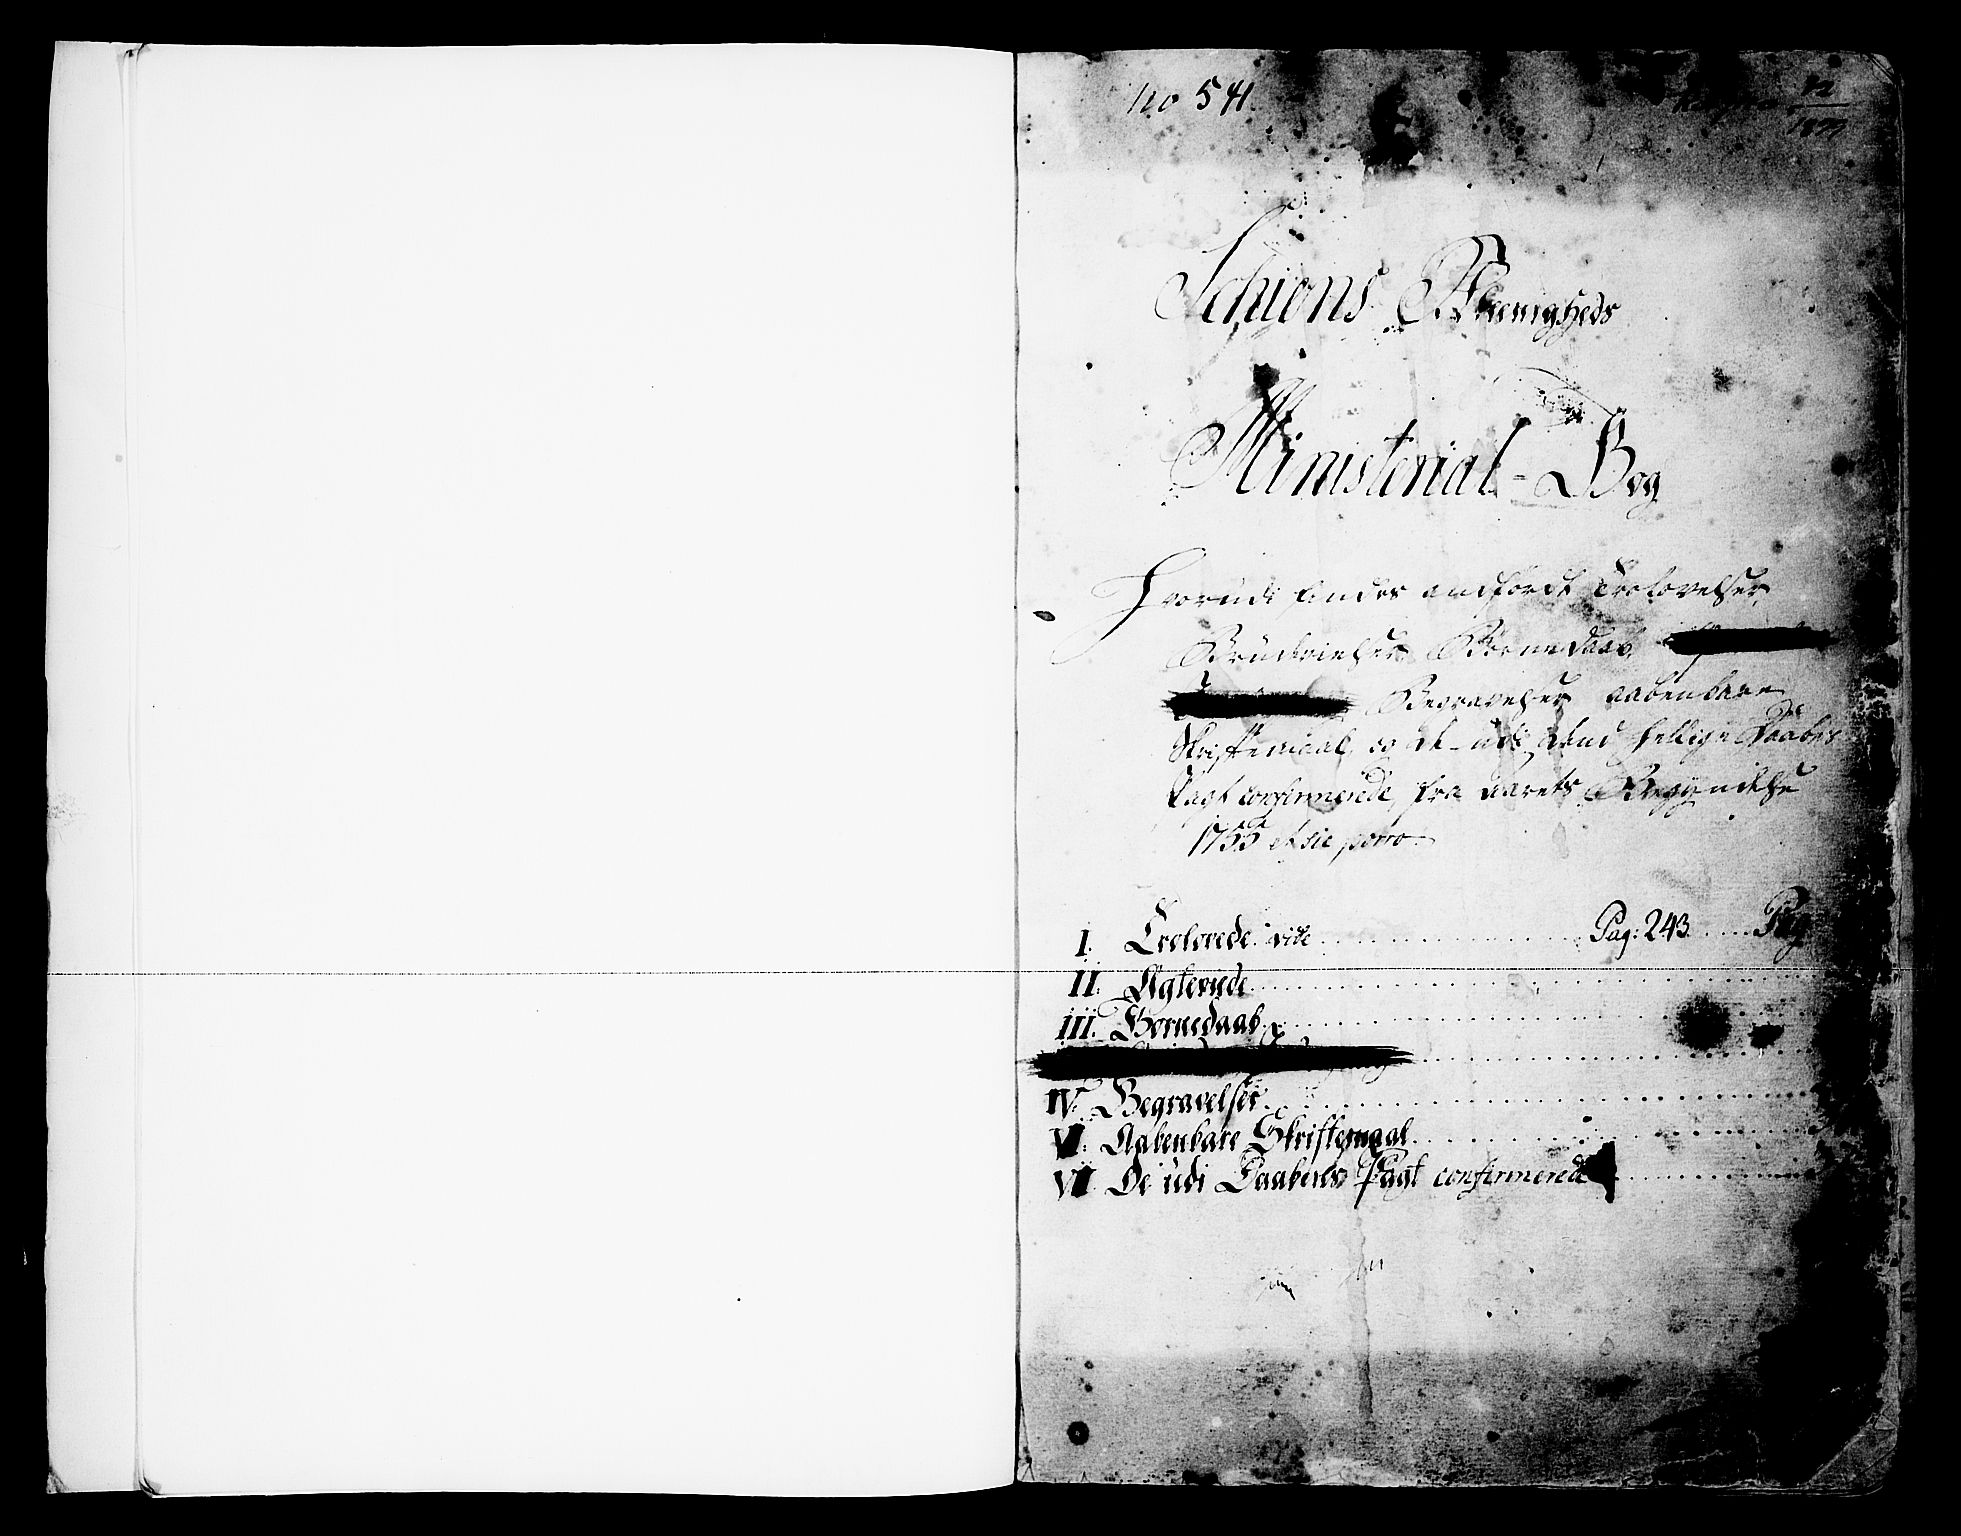 no 541.
42
Schiens Meenigheds
Ministerial-Bog
Hvorudi findes andfördt Trolovelser
Brudevielser, Börnedaab,
Begravelser aabenbare
Skriftemaal, og de udi dend hellige Daabes
Pagt confirmerede, fra aarets Begyndelse
1755 et sic porro.
I. Trolovede. vide Pag: 243 Pag
II. Ægteviede
III. Börnedaab
IV. Begravelser
V. Aabenbare Skriftemaal
VI De udi Daabens Pagt confirmerede